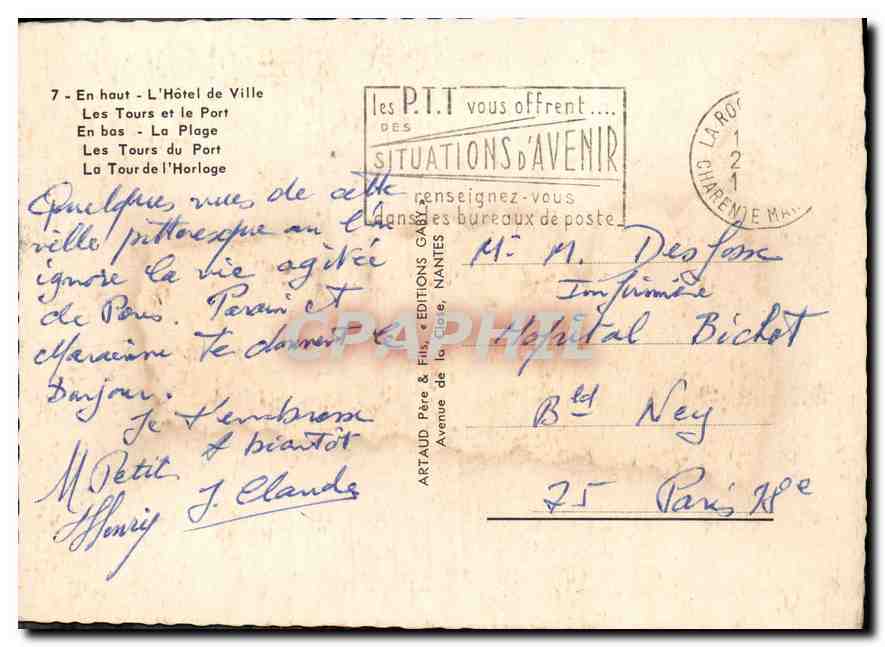 7 - En haut - L'Hôtel de Ville
Les Tours et le Port
En bas - La Plage
Les Tours du Port
La Tour de l'Horloge
les P.T.T vous offrent....
DES
SITUATIONS D'AVENIR
renseignez-vous
dans les bureaux de poste
LA ROC
CHARENTE MAR
1
2
1
Quelques vues de cette
ville pittoresque ou l'on
ignore la vie agitée
de Paris. Parain et
Maraine te donnent le
Bonjour.
Je t'embrasse
A biantôt
M Petit
J. Claude
Henriy
ARTAUD Père & Fils, « EDITIONS GABY »
Avenue de la Close, NANTES
CPAPHIL
M. Desfosse
Infirmière
Hôpital Bichat
Bld Ney
75 Paris 18e